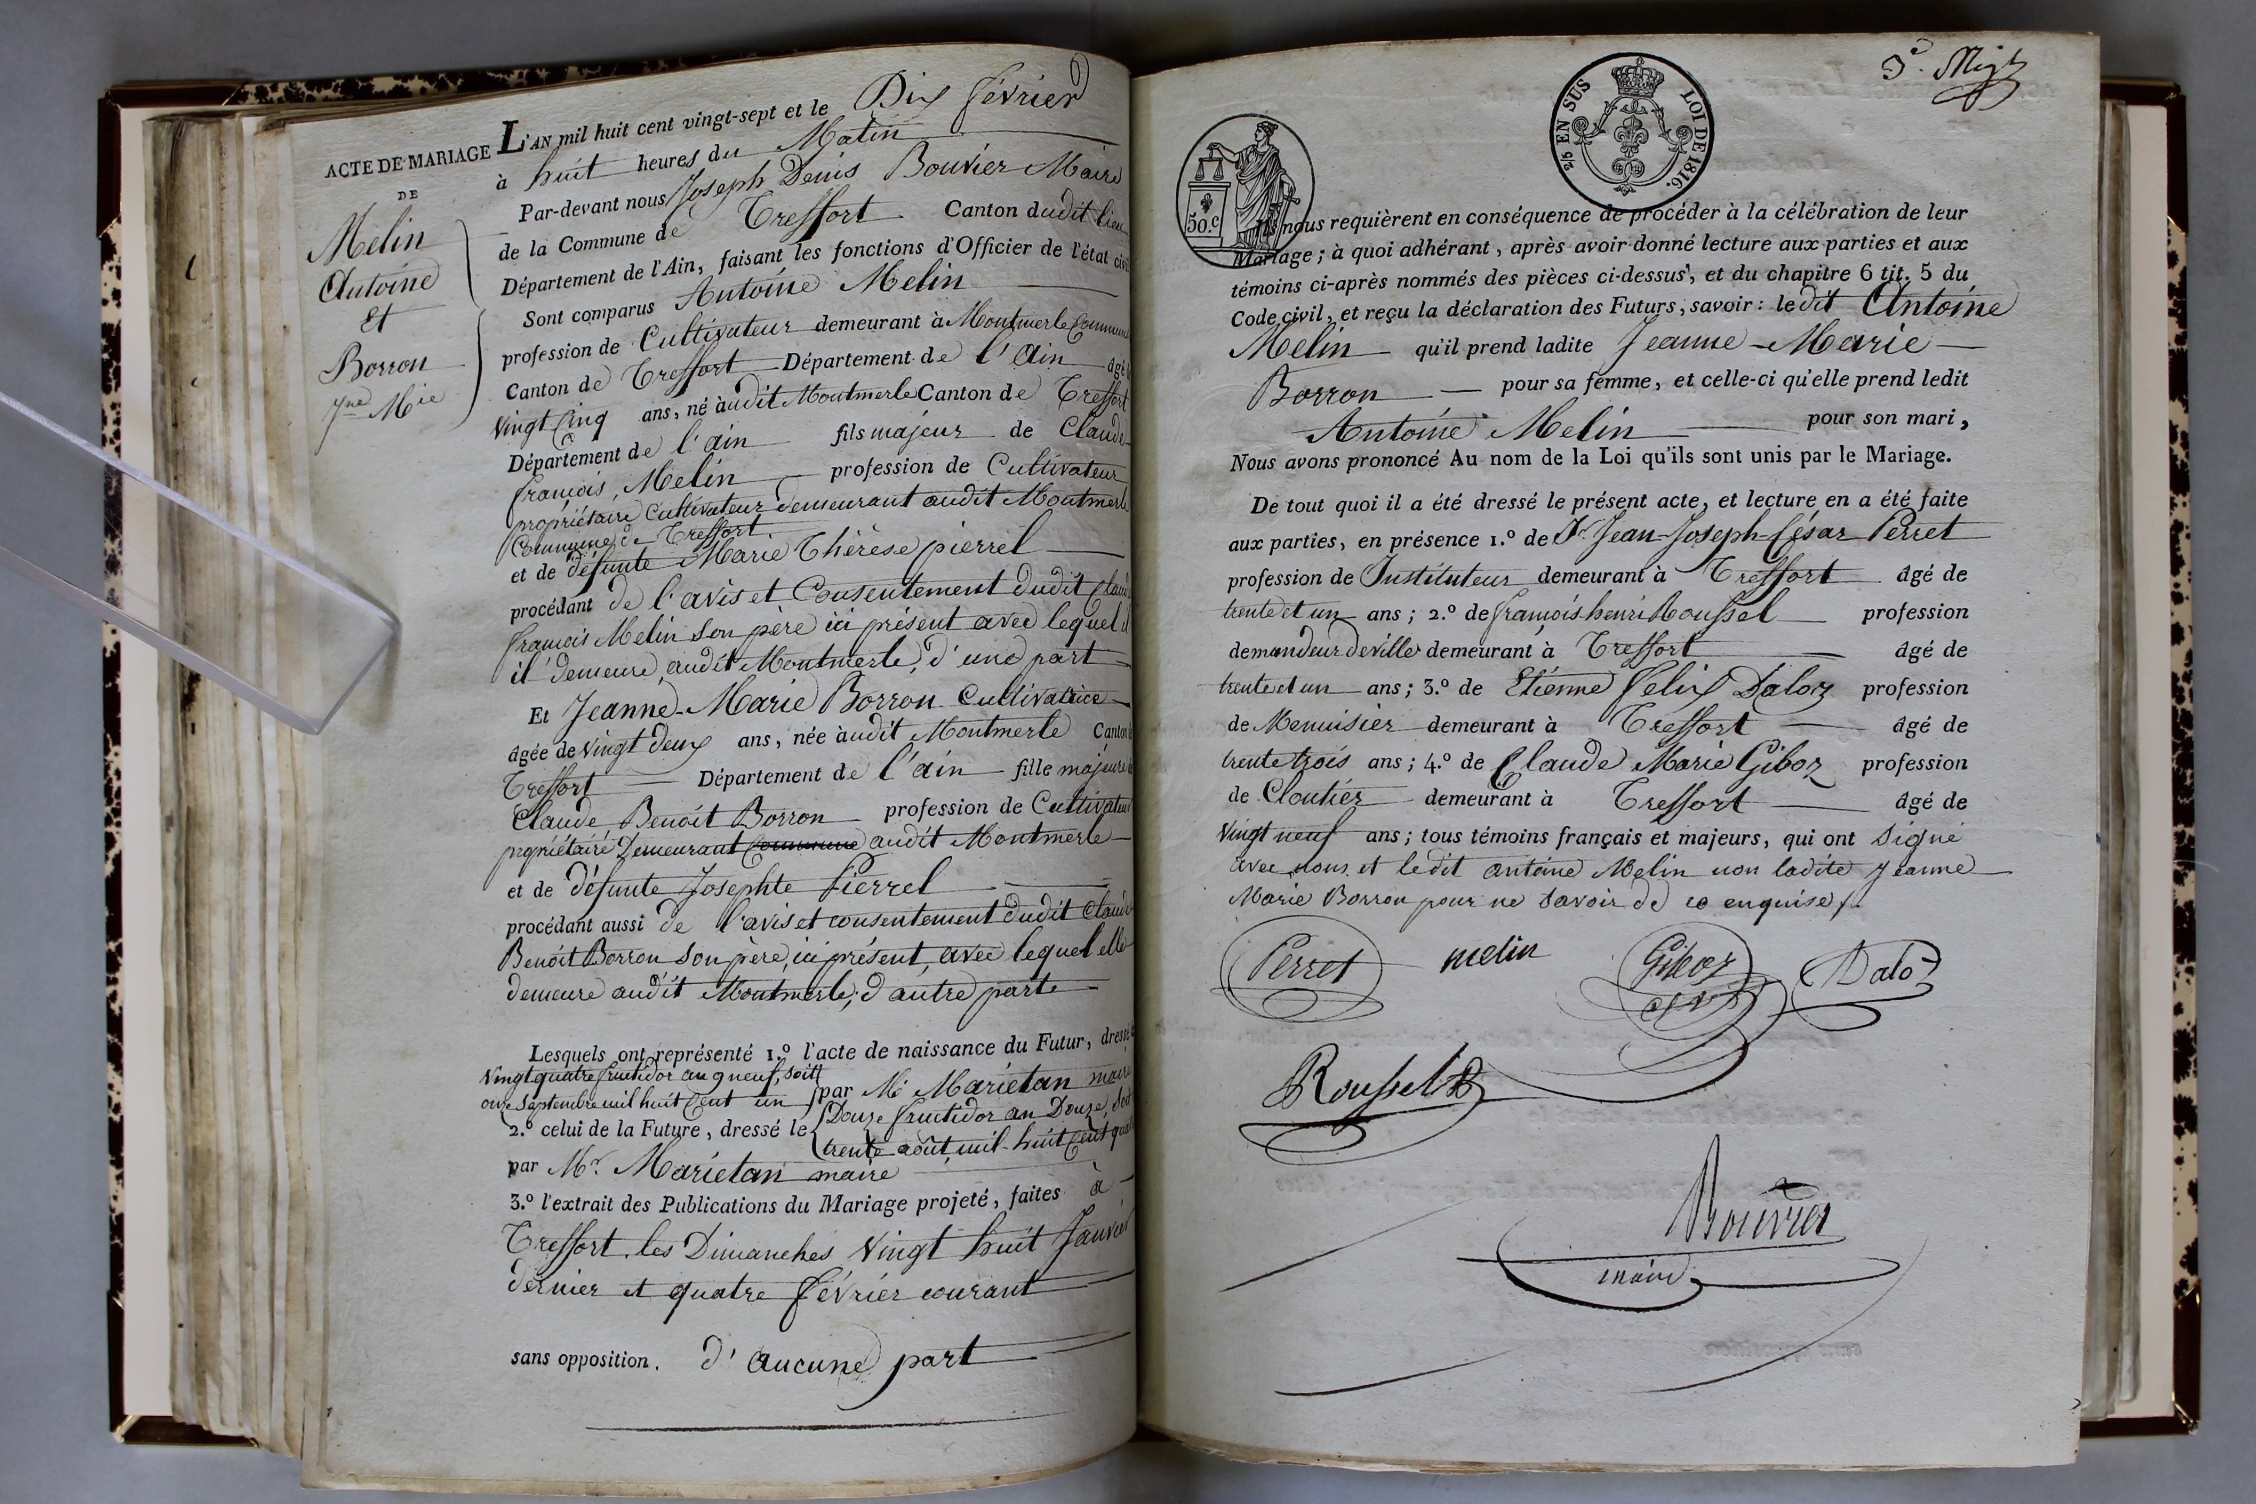 ACTE DE MARIAGE
DE
Melin
Antoine
Et
Borron
Jne Mie
L'AN mil huit cent vingt-sept et le Dix février
à huit heures du Matin
Par-devant nous Joseph Denis Bouvier Maire
de la Commune de Treffort Canton dudit lieu
Département de l'Ain, faisant les fonctions d'Officier de l'état civil
Sont comparus Antoine Melin
profession de Cultivateur demeurant à Montmerle Commune
Canton de Treffort Département de l'ain âgé
Vingt Cinq ans, né àudit Montmerle Canton de Treffort
Département de l'ain fils majeur de Claude
françois Melin profession de Cultivateur
propriétaire Cultivateur demeurant audit Montmerle
Commune de Treffort
et de défunte Marie Thérèse pierrel
procédant de l'avis et Consentement dudit Claude
françois Melin son père ici présent avec lequel il
il demeure audit Montmerle, d'une part
Et Jeanne-Marie Borron Cultivatrice
âgée de Vingt deux ans, née àudit Montmerle Canton de
Treffort Département de l'ain fille majeure de
Claude Benoit Borron profession de Cultivateur
propriétaire Demeurant Commune audit Montmerle
et de défunte Josephte Pierrel
procédant aussi de l'avis et consentement dudit Claude
Benoit Borron son père, ici présent, avec lequel elle
demeure audit Montmerle, d'autre parte
Lesquels ont représenté 1.º l'acte de naissance du Futur, dressé
Vingt quatre fructidor an 9 neuf, soit
onze Septembre mil huit Cent un par Mr Marietan maire
2.º celui de la Future, dressé le Douze fructidor an Douze, soit
trente août mil-huit Cent quatre
par Mr. Marietan maire
3.º l'extrait des Publications du Mariage projeté, faites à
Treffort les Dimanches Vingt huit Janvier
dernier et quatre février courant
sans opposition. d'aucune part
3e. Mge
25 EN SUS LOI DE 1816.
50.c
Ils nous requièrent en conséquence de procéder à la célébration de leur
Mariage ; à quoi adhérant, après avoir donné lecture aux parties et aux
témoins ci-après nommés des pièces ci-dessus, et du chapitre 6 tit. 5 du
Code civil, et reçu la déclaration des Futurs, savoir : ledit Antoine
Melin qu'il prend ladite Jeanne-Marie
Borron pour sa femme, et celle-ci qu'elle prend ledit
Antoine Melin pour son mari,
Nous avons prononcé Au nom de la Loi qu'ils sont unis par le Mariage.
De tout quoi il a été dressé le présent acte, et lecture en a été faite
aux parties, en présence 1.º de Sr. Jean-Joseph-César Perret
profession de Instituteur demeurant à Treffort âgé de
trente et un ans ; 2.º de françois henri Roussel profession
demandeur deville demeurant à Treffort âgé de
trente et un ans ; 3.º de Etienne felix Daloz profession
de Menuisier demeurant à Treffort âgé de
trente trois ans ; 4.º de Claude Marie Giboz profession
de Cloutier demeurant à Treffort âgé de
Vingt neuf ans ; tous témoins français et majeurs, qui ont signé
avec nous et ledit antoine Melin non ladite Jeanne
Marie Borron pour ne savoir de ce enquise.
Perret melin Giboz Daloz
Roussel
Bouvier
maire